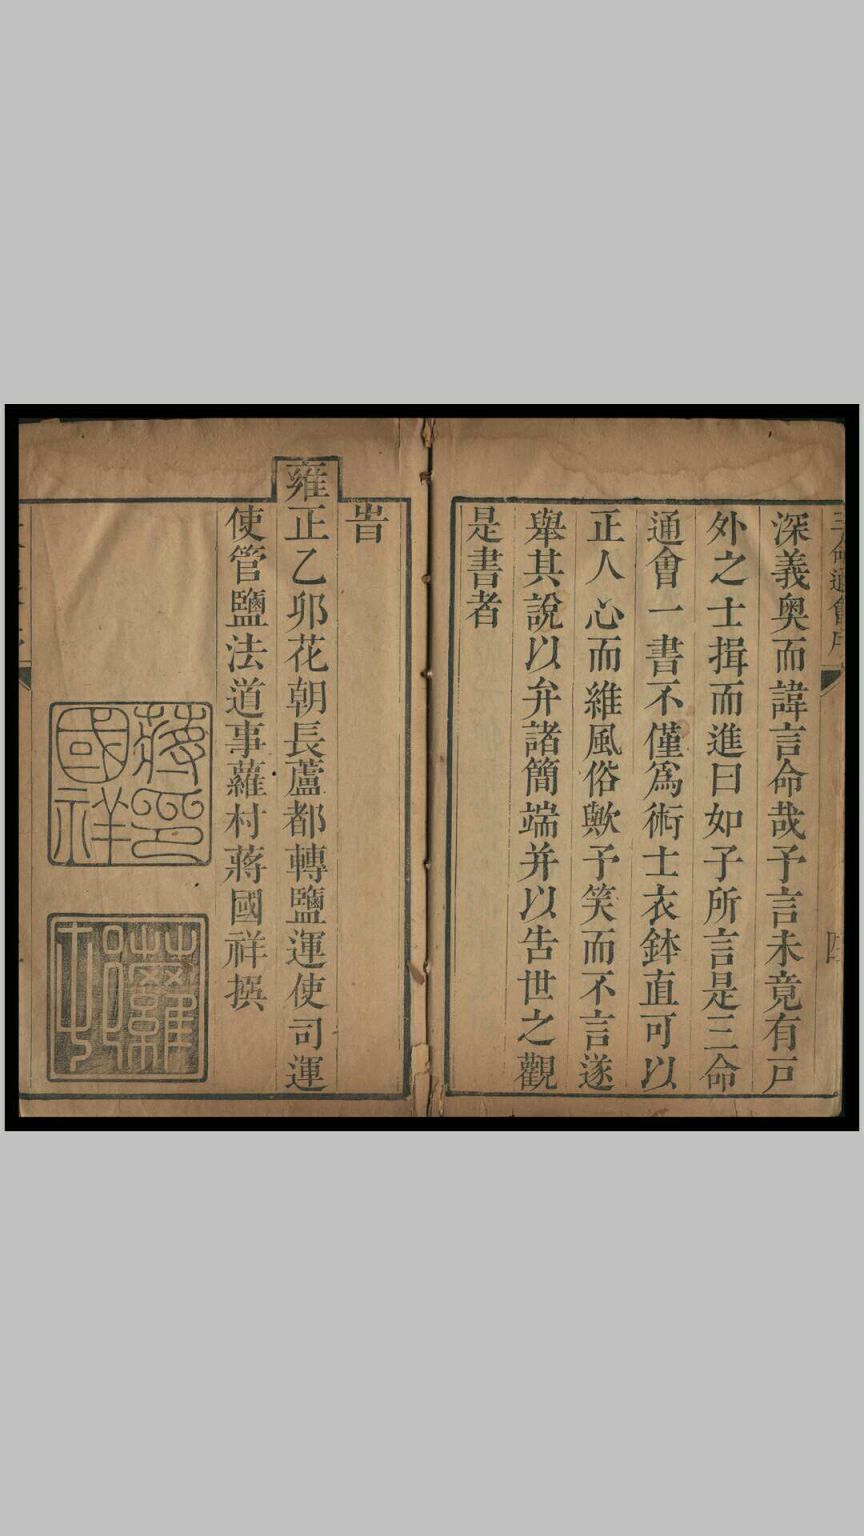 三命通會序
深義奧而諱言命哉予言未竟有戸
外之士揖而進曰如子所言是三命
通會一書不僅為術士衣鉢直可以
正人心而維風俗歟予笑而不言遂
舉其說以弁諸簡端并以告世之觀
是書者
旹
雍正乙卯花朝長蘆都轉鹽運使司運
使管鹽法道事蘿村蔣國祥撰
蔣國祥印
蘿村